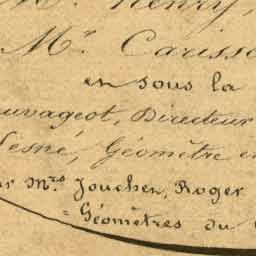 Mr. Henry,
Mr. Cariss
en sous la
uvageot, Directeur
esné, Géomètre en
ur Mrs. Jouchen, Roger
= Géomètres du